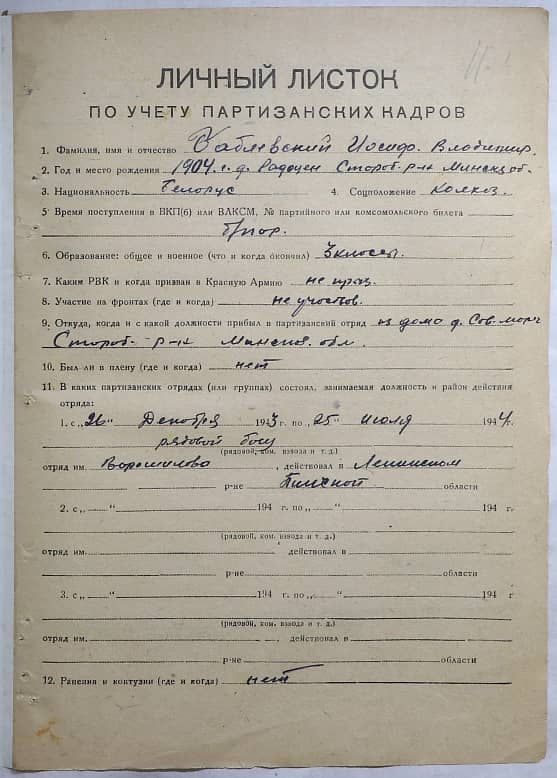 ЛИЧНЫЙ ЛИСТОК
ПО УЧЕТУ ПАРТИЗАНСКИХ КАДРОВ
1. Фамилия, имя и отчество Иосиф. Владимир.
2. Год и место рождения 1904 г. д. Стороб. р-на Минск. об.
3. Национальность Белорус 4. Соцположение колхоз.
5 Время поступления в ВКП(б) или ВЛКСМ, № партийного или комсомольского билета
б/пар.
6. Образование: общее и военное (что и когда окончил) 3 классы.
7. Каким РВК и когда призван в Красную Армию не приз.
8. Участие на фронтах (где и когда) не участв.
9. Откуда, когда и с какой должности прибыл в партизанский отряд из дома д. Сов.
Стороб. р-на Минской обл.
10. Был ли в плену (где и когда) нет
11. В каких партизанских отрядах (или группах) состоял, занимаемая должность и район действия
отряда:
1. с „26" Декабря 1943 г. по „25" Июля 1944 г.
рядовой боец
(рядовой, ком. взвода и т. д.)
отряд им. Ворошилова, действовал в Ленинском
р-не Пинской области
2. с „ " 194 г. по „ " 194 г
(рядовой, ком. взвода и т. д.)
отряд им. действовал в
р-не области
3. с „ " 194 г. по „ " 194 г
(рядовой, ком. взвода и т. д.)
отряд им. , действовал в
р-не области
12. Ранения и контузии (где и когда) нет